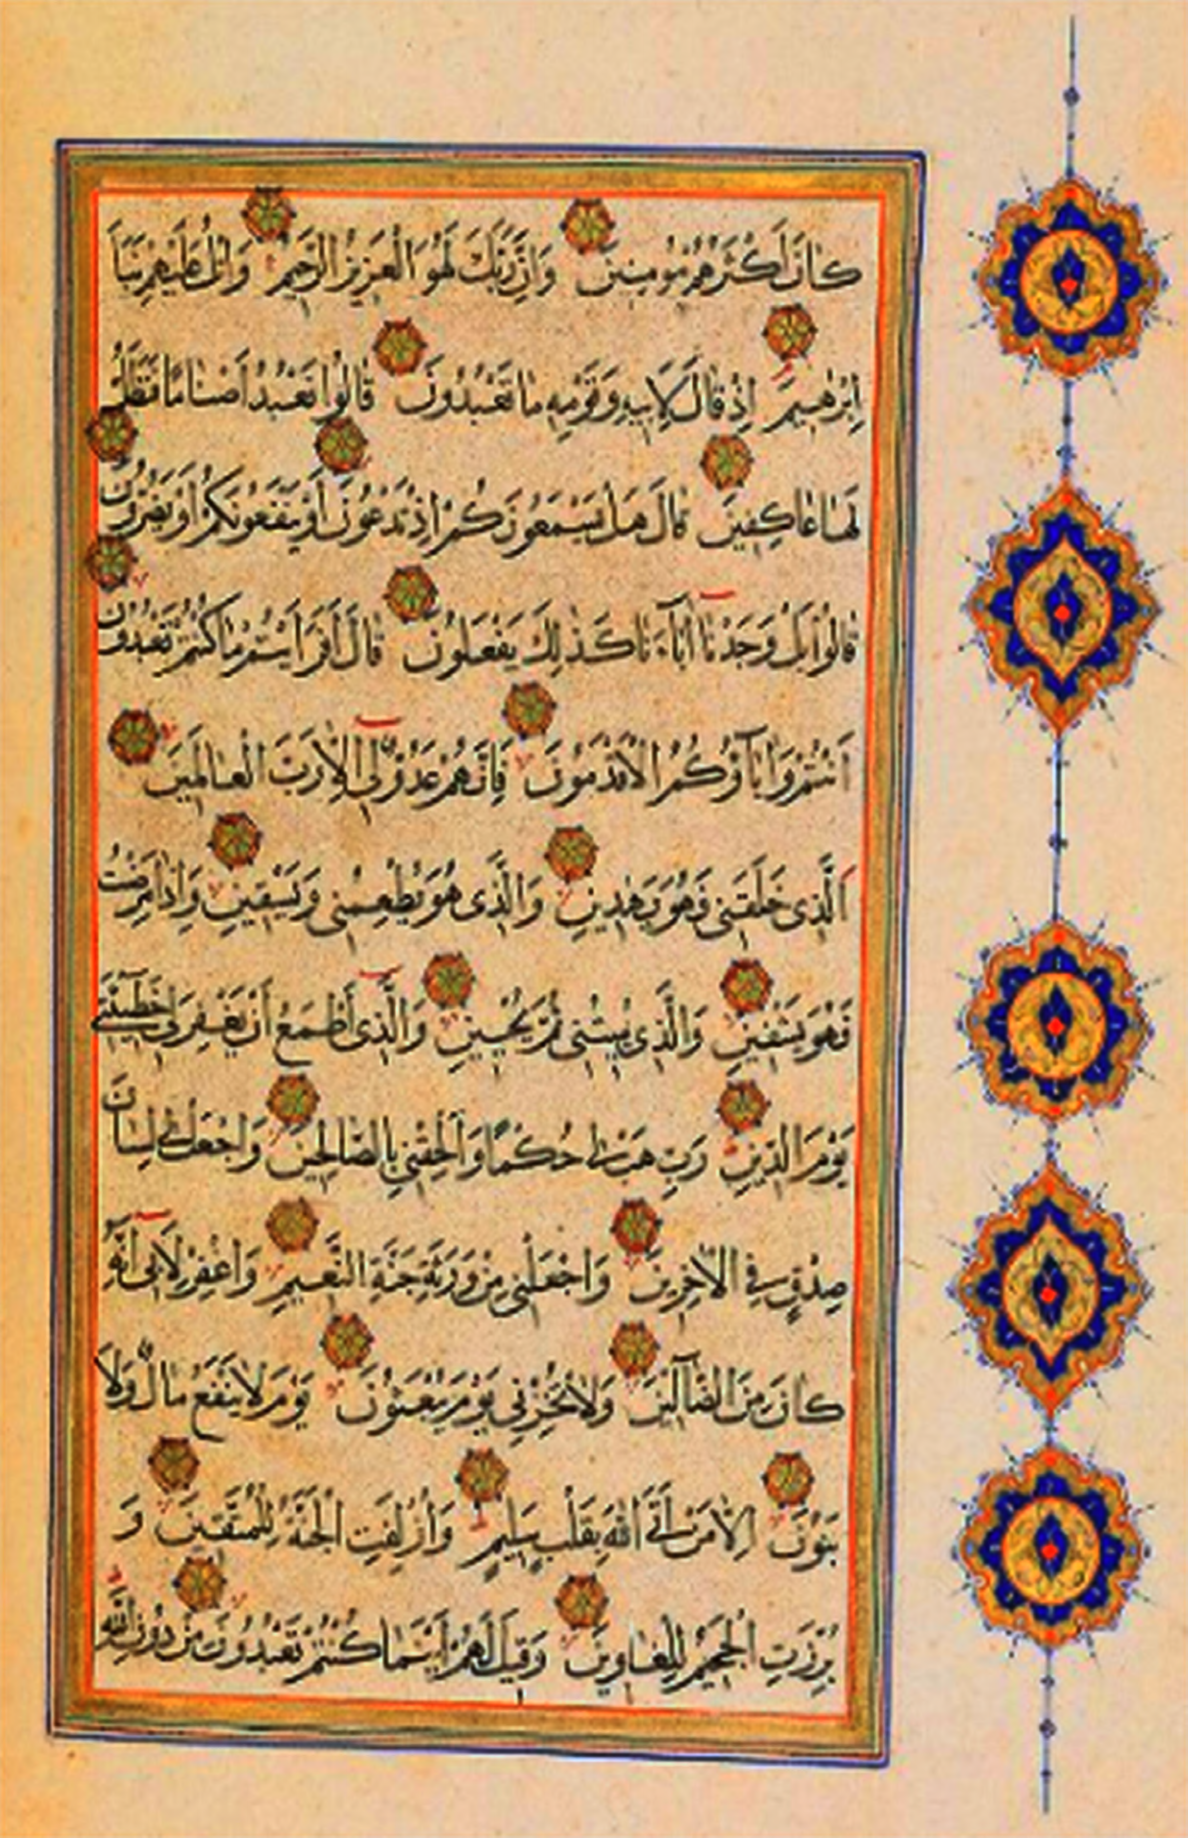 كَانَ أَكْثَرُهُمْ مُؤْمِنِينَ وَإِنَّ رَبَّكَ لَهُوَ الْعَزِيزُ الرَّحِيمُ وَاتْلُ عَلَيْهِمْ نَبَأَ
إِبْرٰهِيمَ إِذْ قَالَ لِأَبِيهِ وَقَوْمِهِ مَا تَعْبُدُونَ قَالُوا نَعْبُدُ أَصْنَامًا فَنَظَلُّ
لَهَا عَاكِفِينَ قَالَ هَلْ يَسْمَعُونَكُمْ إِذْ تَدْعُونَ أَوْ يَنْفَعُونَكُمْ أَوْ يَضُرُّونَ
قَالُوا بَلْ وَجَدْنَا اٰبَاۤءَنَا كَذٰلِكَ يَفْعَلُونَ قَالَ أَفَرَأَيْتُمْ مَا كُنْتُمْ تَعْبُدُونَ
أَنْتُمْ وَاٰبَاۤؤُكُمُ الْأَقْدَمُونَ فَإِنَّهُمْ عَدُوٌّ لِي إِلَّا رَبَّ الْعَالَمِينَ
الَّذِي خَلَقَنِي فَهُوَ يَهْدِينِ وَالَّذِي هُوَ يُطْعِمُنِي وَيَسْقِينِ وَإِذَا مَرِضْتُ
فَهُوَ يَشْفِينِ وَالَّذِي يُمِيتُنِي ثُمَّ يُحْيِينِ وَالَّذِي أَطْمَعُ أَنْ يَغْفِرَ لِي خَطِيۤئَتِي
يَوْمَ الدِّينِ رَبِّ هَبْ لِي حُكْمًا وَأَلْحِقْنِي بِالصَّالِحِينَ وَاجْعَلْ لِي لِسَانَ
صِدْقٍ فِي الْاٰخِرِينَ وَاجْعَلْنِي مِنْ وَرَثَةِ جَنَّةِ النَّعِيمِ وَاغْفِرْ لِأَبِي إِنَّهُ
كَانَ مِنَ الضَّاۤلِّينَ وَلَا تُخْزِنِي يَوْمَ يُبْعَثُونَ يَوْمَ لَا يَنْفَعُ مَالٌ وَلَا
بَنُونَ إِلَّا مَنْ أَتَى اللّٰهَ بِقَلْبٍ سَلِيمٍ وَأُزْلِفَتِ الْجَنَّةُ لِلْمُتَّقِينَ وَ
بُرِّزَتِ الْجَحِيمُ لِلْغَاوِينَ وَقِيلَ لَهُمْ أَيْنَمَا كُنْتُمْ تَعْبُدُونَ مِنْ دُونِ اللّٰهِ